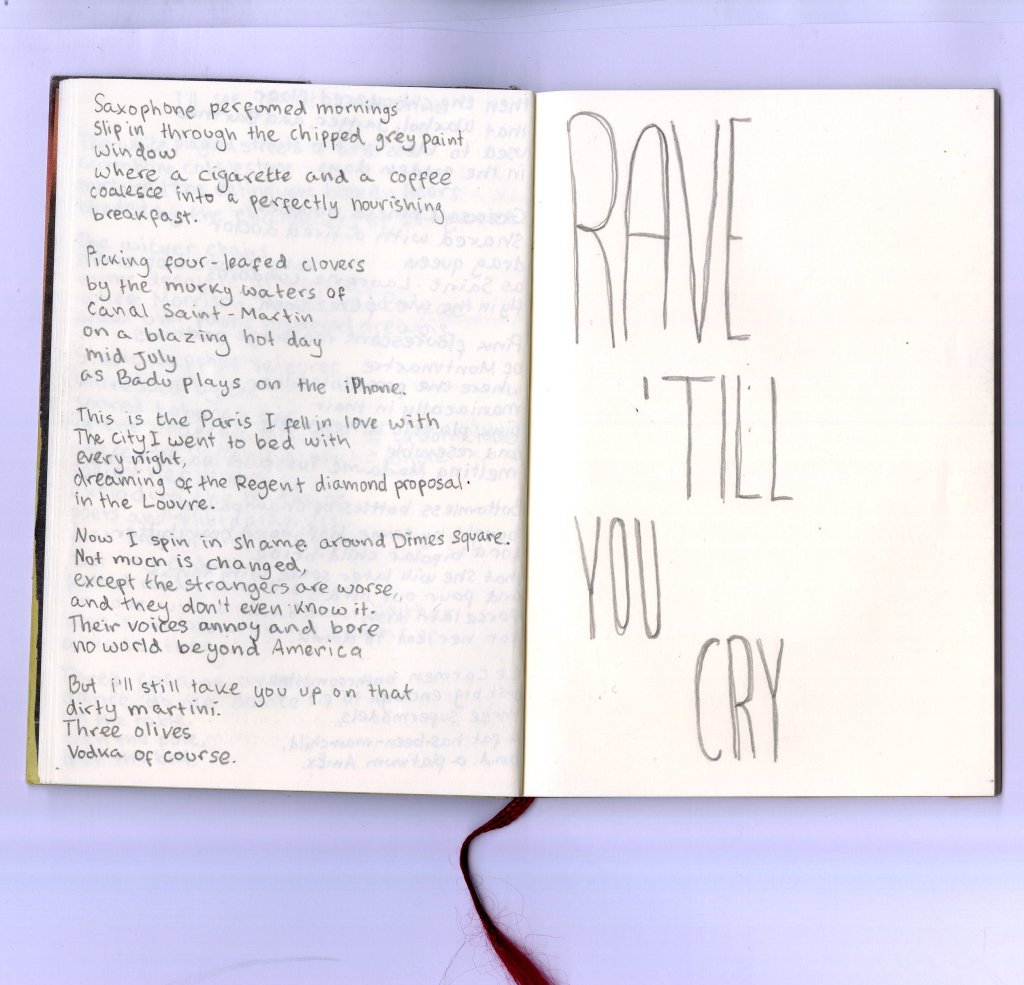 Saxophone perfumed mornings
slip in through the chipped grey paint
window
where a cigarette and a coffee
coalesce into a perfectly nourishing
breakfast.
Picking four-leafed clovers
by the murky waters of
Canal Saint-Martin
on a blazing hot day
mid July
as Badu plays on the iPhone.
This is the Paris I fell in love with
The City I went to bed with
every night,
dreaming of the Regent diamond proposal.
in the Louvre.
Now I spin in shame around Dimes Square.
Not much is changed,
except the strangers are worse,
and they don't even know it.
Their voices annoy and bore
no world beyond America
But i'll still take you up on that
dirty martini.
Three olives
Vodka of course.
RAVE
'TILL
YOU
CRY